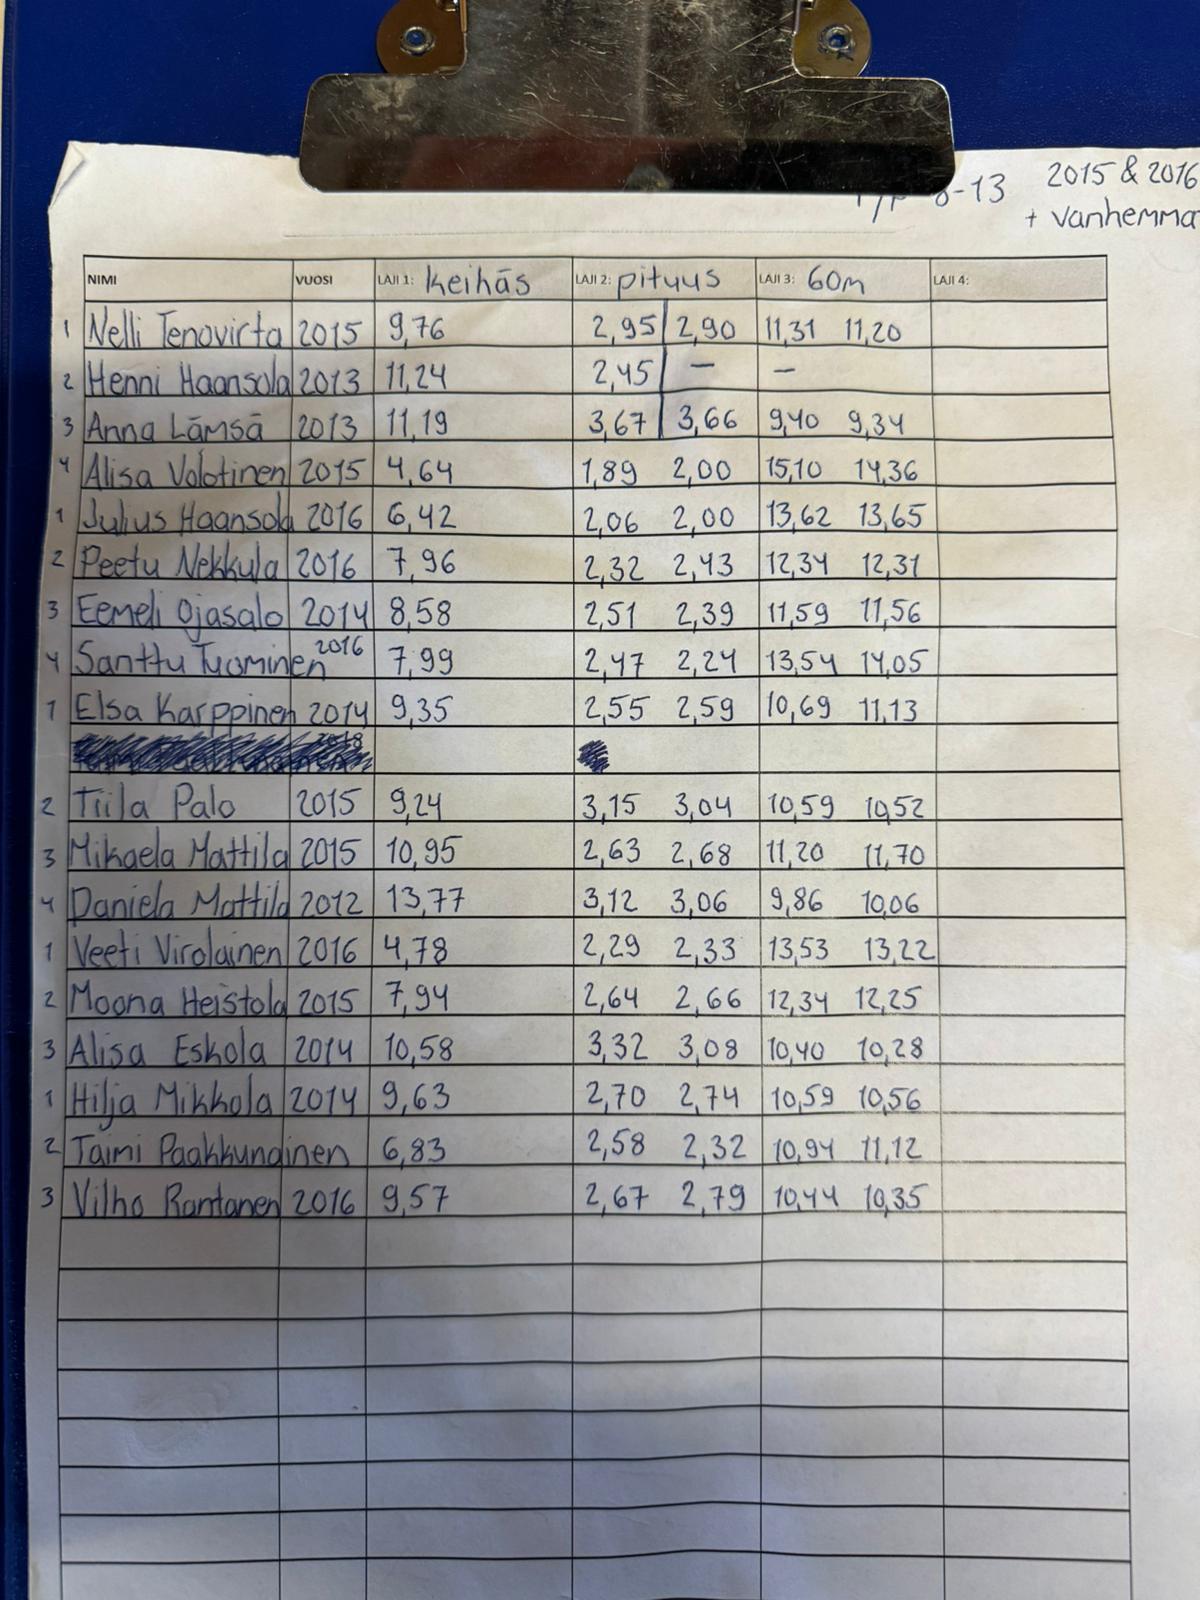 8-13 2015 & 2016
+ vanhemma
NIMI VUOSI LAJI 1: Keihäs LAJI 2: pituus LAJI 3: 60m LAJI 4:
1 Nelli Tenovirta 2015 9,76 2,95 2,90 11,31 11,20
2 Henni Haansola 2013 11,24 2,45 — —
3 Anna Lämsä 2013 11,19 3,67 3,66 9,40 9,34
4 Alisa Volotinen 2015 4,64 1,89 2,00 15,10 14,36
1 Julius Haansola 2016 6,42 2,06 2,00 13,62 13,65
2 Peetu Nekkula 2016 7,96 2,32 2,43 12,34 12,31
3 Eemeli Ojasalo 2014 8,58 2,51 2,39 11,59 11,56
4 Santtu Tuominen 2016 7,99 2,47 2,24 13,54 14,05
1 Elsa Karppinen 2014 9,35 2,55 2,59 10,69 11,13
2 Tiila Palo 2015 9,24 3,15 3,04 10,59 10,52
3 Mikaela Mattila 2015 10,95 2,63 2,68 11,20 11,70
4 Daniela Mattila 2012 13,77 3,12 3,06 9,86 10,06
1 Veeti Virolainen 2016 4,78 2,29 2,33 13,53 13,22
2 Moona Heistola 2015 7,94 2,64 2,66 12,34 12,25
3 Alisa Eskola 2014 10,58 3,32 3,08 10,40 10,28
1 Hilja Mikkola 2014 9,63 2,70 2,74 10,59 10,56
2 Taimi Paakkunainen 6,83 2,58 2,32 10,94 11,12
3 Vilho Rantanen 2016 9,57 2,67 2,79 10,44 10,35